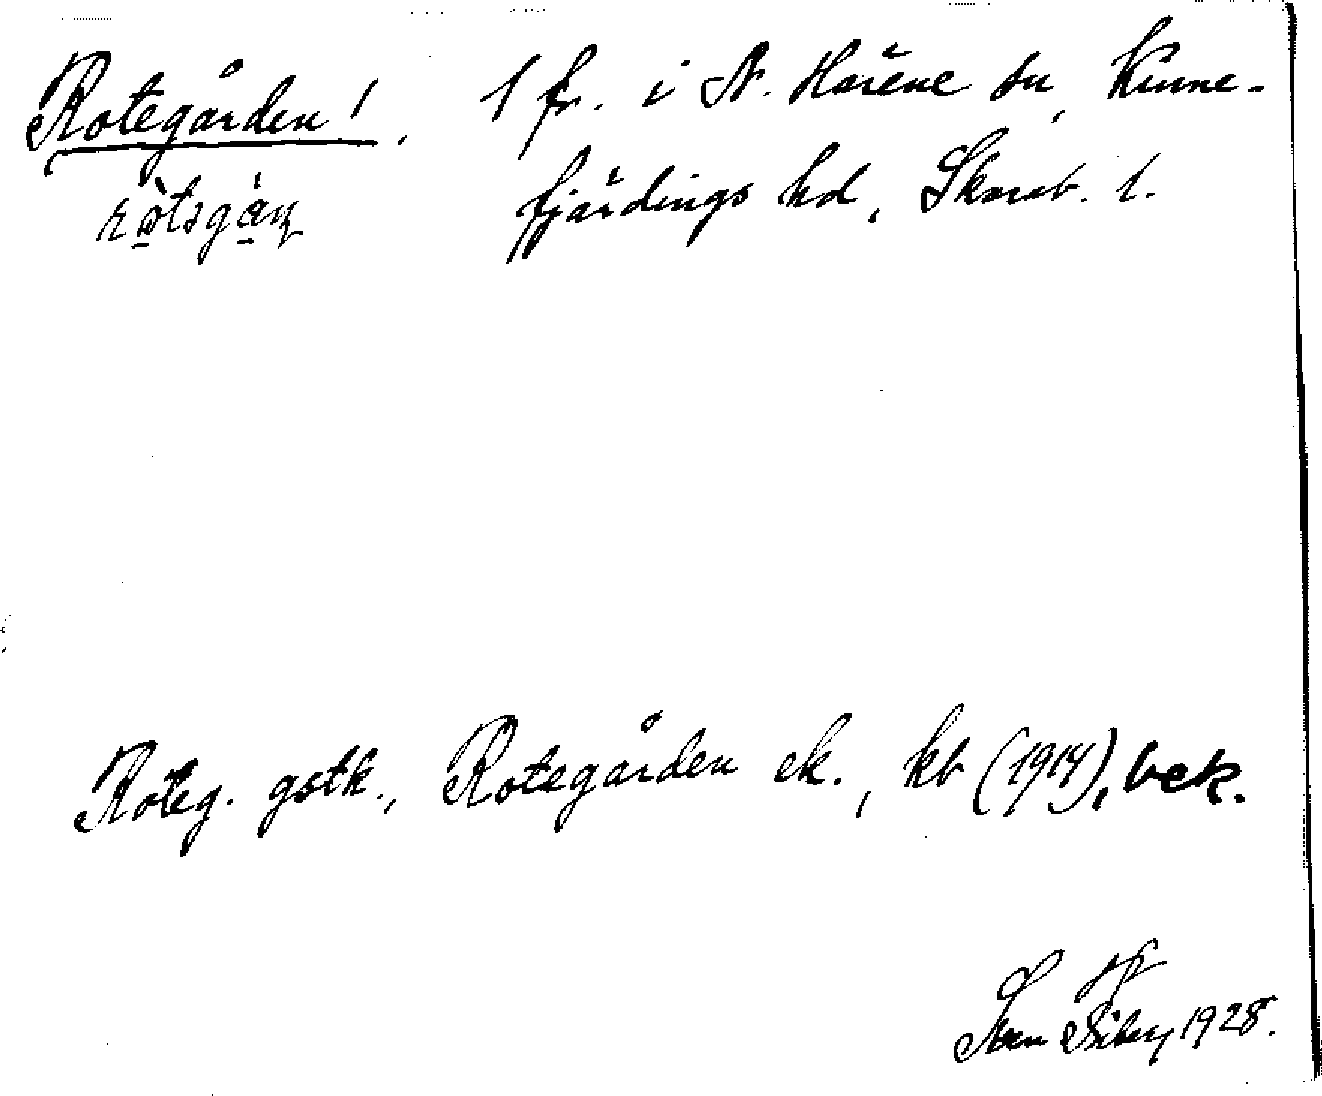 Rotegården!, 1 fr. i N. Härene sn, Kinne-
fjärdings hd, Skarab. l.
Roteg. gstk., Rotegården ek., kb (1914), bek.
1928.